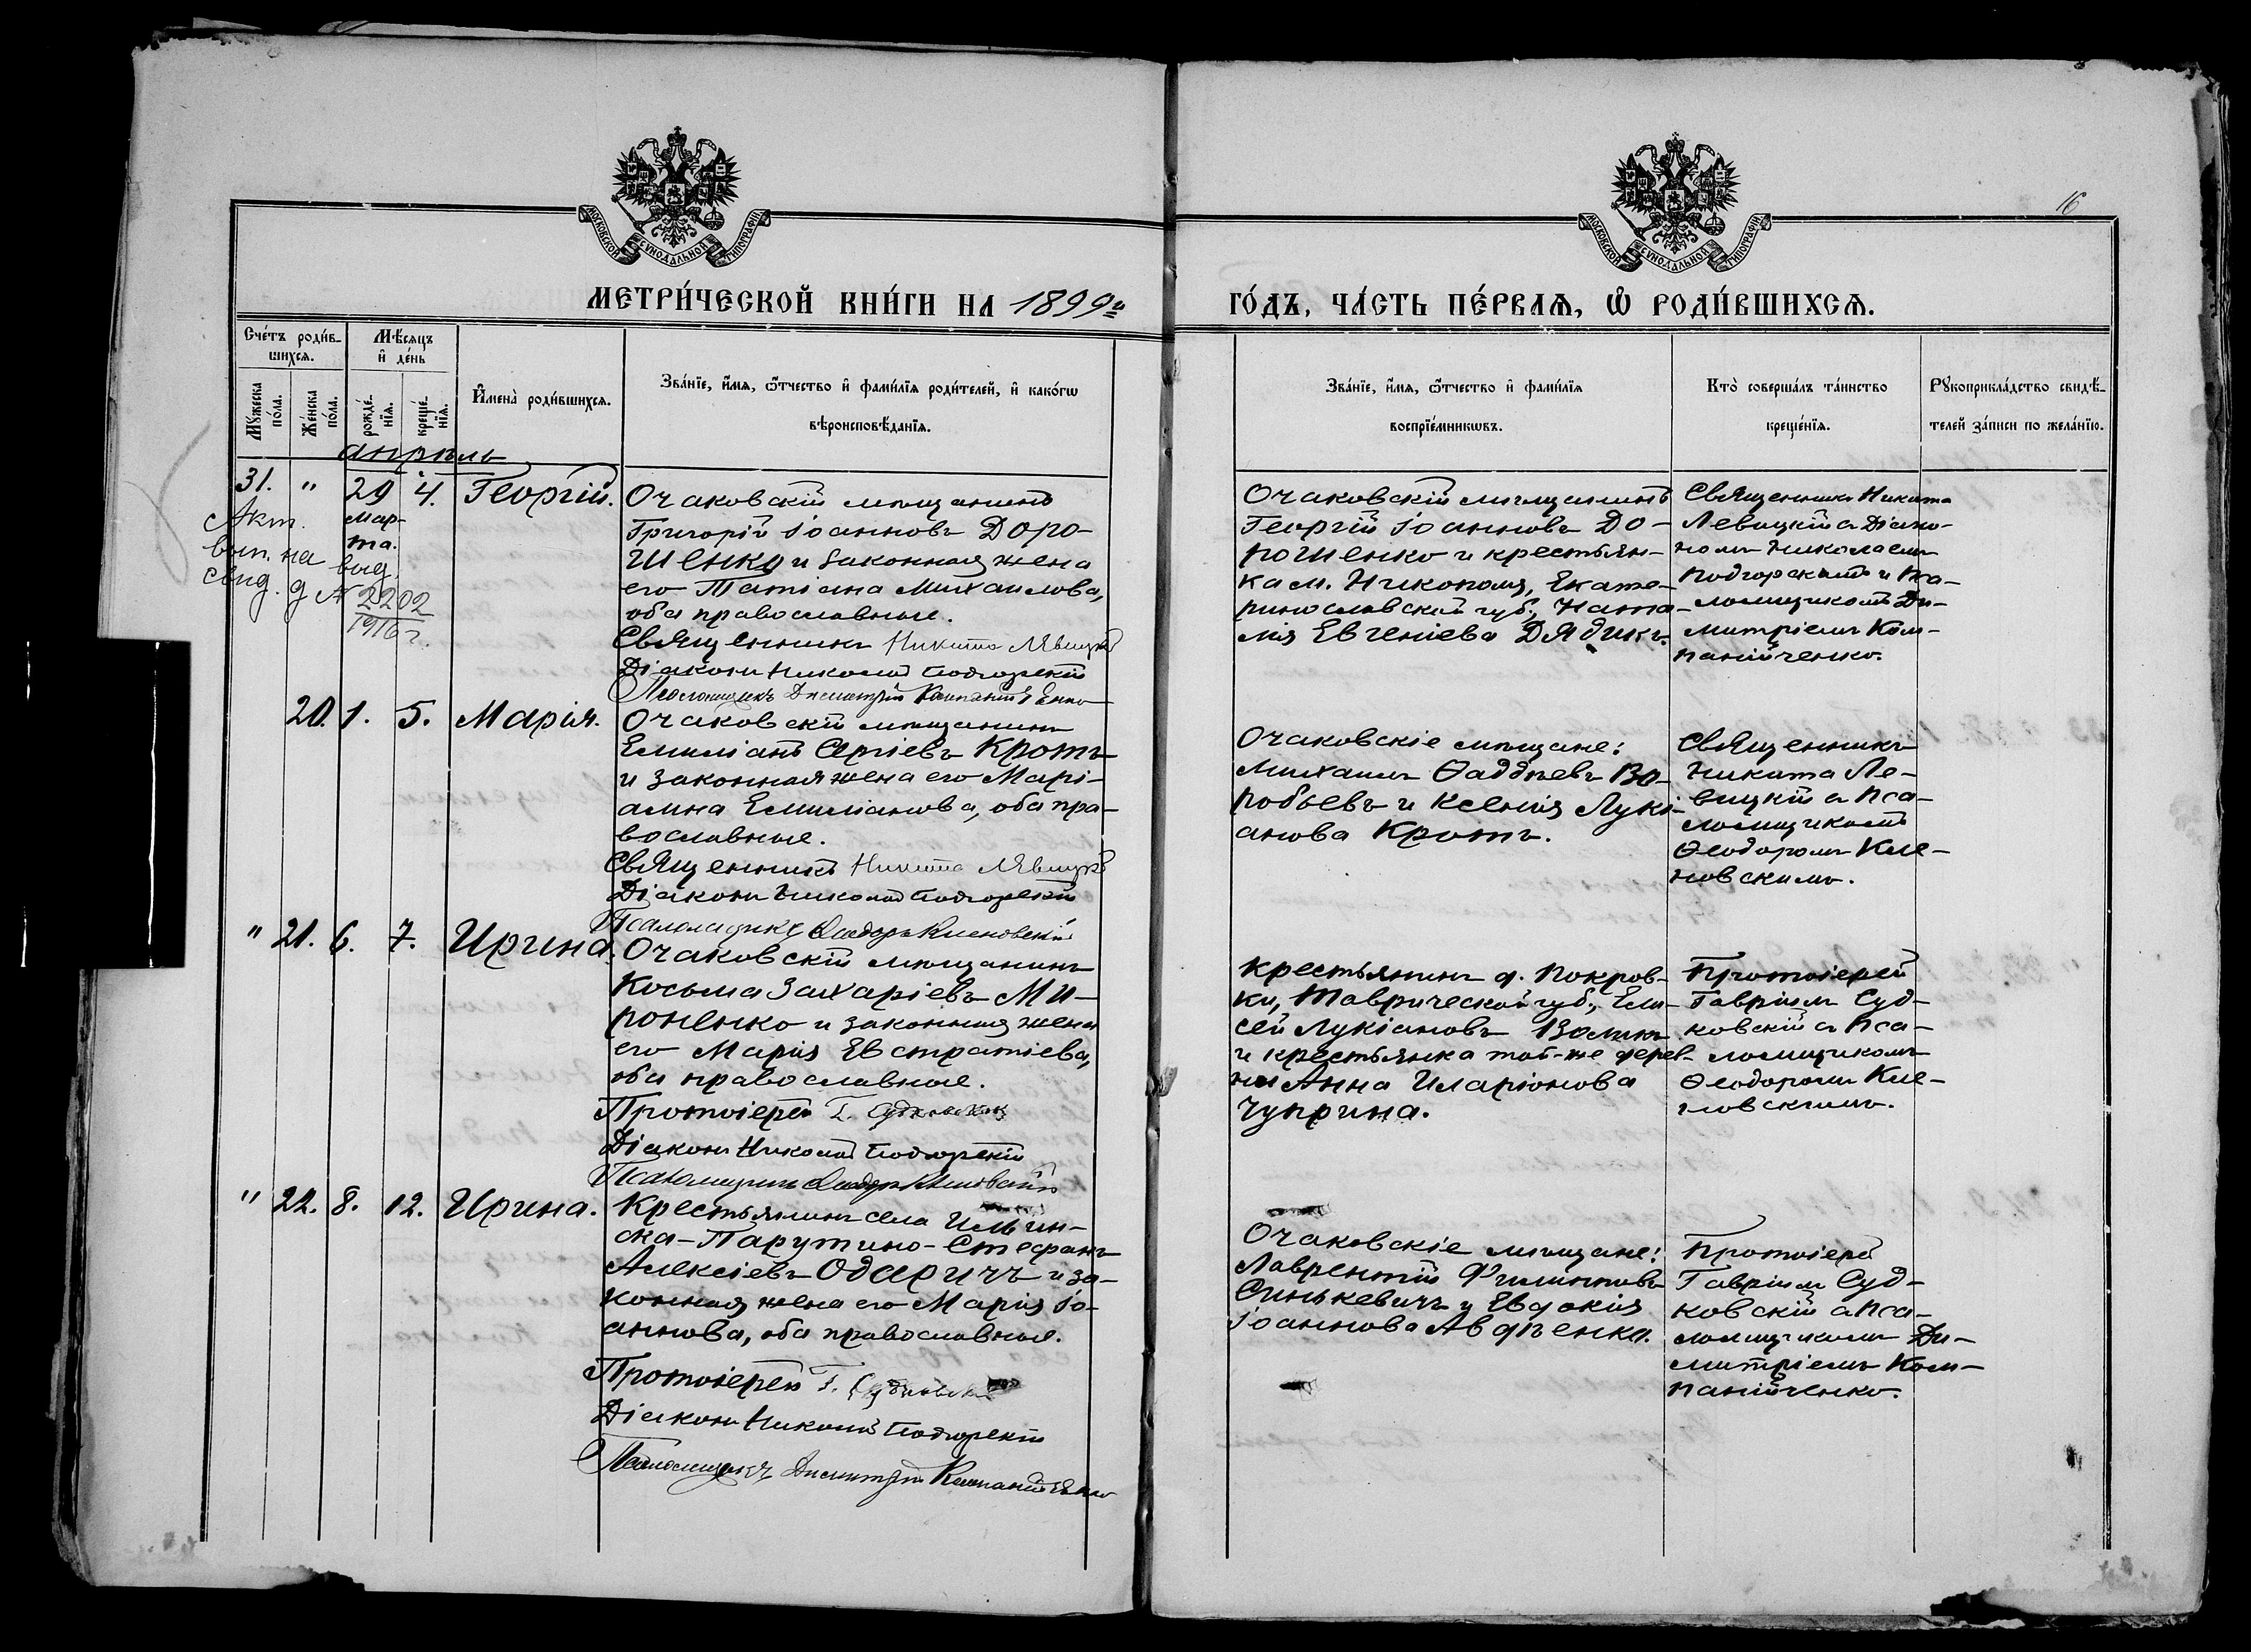 16
МОСКОВСКОЙ СѴНОДАЛЬНОЙ ТИПОГРАФІИ
МОСКОВСКОЙ СѴНОДАЛЬНОЙ ТИПОГРАФІИ
МЕТРИ́ЧЕСКОЙ КНИ́ГИ НА 1899й
ГО́ДЪ, ЧА́СТЬ ПЕ́РВАѦ, Ѡ҆ РОДИ́ВШИХСѦ.
Сче́тъ роди́в-
шихсѧ.
Мꙋ́жеска по́ла.
Же́нска по́ла.
Мѣ́сѧцъ
и҆ де́нь
рожде́-
нїѧ.
креще́-
нїѧ.
И҆мена̀ роди́вшихсѧ.
Зва́нїе, и҆́мѧ, ѻ҆́тчество и҆ фами́лїѧ роди́телей, и҆ како́гѡ
вѣроисповѣ́данїѧ.
Зва́нїе, и҆́мѧ, ѻ҆́тчество и҆ фами́лїѧ
воспрїе́мникѡвъ.
Кто̀ соверша́лъ та́инство
креще́нїѧ.
Рꙋкоприкла́дство свидѣ́-
телей за́писи по жела́нїю.
апрѣль
31. " 29 4. Георгій.
Мар-
та.
Акт.
вып. на выд.
свид. д № 2202
1916 г.
Очаковскій мѣщанинъ
Григорій Іоанновъ Доро-
шенко и законная жена
его Татіана Михаилова,
оба православные.
Священникъ Никита Левицкій
Діаконъ Николай Подгорскій
Псаломщикъ Димитрій Компанійченко
Очаковскій мѣщанинъ
Георгій Іоанновъ До-
рошенко и крестьян-
ка м. Никополя, Екате-
ринославской губ., Ната-
лія Евгеніева Дядикъ.
Священникъ Никита
Левицкій съ Діако-
номъ Николаемъ
Подгорскимъ и Пса-
ломщикомъ Ди-
митріемъ Ком-
панійченко.
20. 1. 5. Марія.
Очаковскій мѣщанинъ
Емиліанъ Сергіевъ Кротъ
и законная жена его Марі-
амна Емиліанова, оба пра-
вославные.
Священникъ Никита Левицкій
Діаконъ Николай Подгорскій
Псаломщикъ Ѳеодоръ Кленовскій
Очаковскіе мѣщане:
Михаилъ Ѳаддѣевъ Во-
робьевъ и Ксенія Луки-
анова Кротъ.
Священникъ
Никита Ле-
вицкій съ Пса-
ломщикомъ
Ѳеодоромъ Кле-
новскимъ.
" 21. 6. 7. Ирина.
Очаковскій мѣщанинъ
Косьма Захаріевъ Ми-
роненко и законная жена
его Марія Евстратіева,
оба православные.
Протоіерей Г. Судковскій
Діаконъ Николай Подгорскій
Псаломщикъ Ѳеодоръ Кленовскій
Крестьянинъ д. Покров-
ки, Таврической губ., Ели-
сей Лукіановъ
и крестьянка той-же дерев-
ни Анна Иларіонова
Чуприна.
Протоіерей
Гавріилъ Суд-
ковскій съ Пса-
ломщикомъ
Ѳеодоромъ Кле-
новскимъ.
" 22. 8. 12. Ирина.
Крестьянинъ села Ильин-
ска-Парутино-Стефанъ
Алексіевъ Одаричъ и за-
конная жена его Марія Іо-
аннова, оба православные.
Протоіерей Г. Судковскій
Діаконъ Николай Подгорскій
Псаломщикъ Димитрій Компанійченко
Очаковскіе мѣщане:
Лаврентій Филипповъ
Синькевичъ и Евдокія
Іоаннова Авдѣенко.
Протоіерей
Гавріилъ Суд-
ковскій съ Пса-
ломщикомъ Ди-
митріемъ Ком-
панійченко.